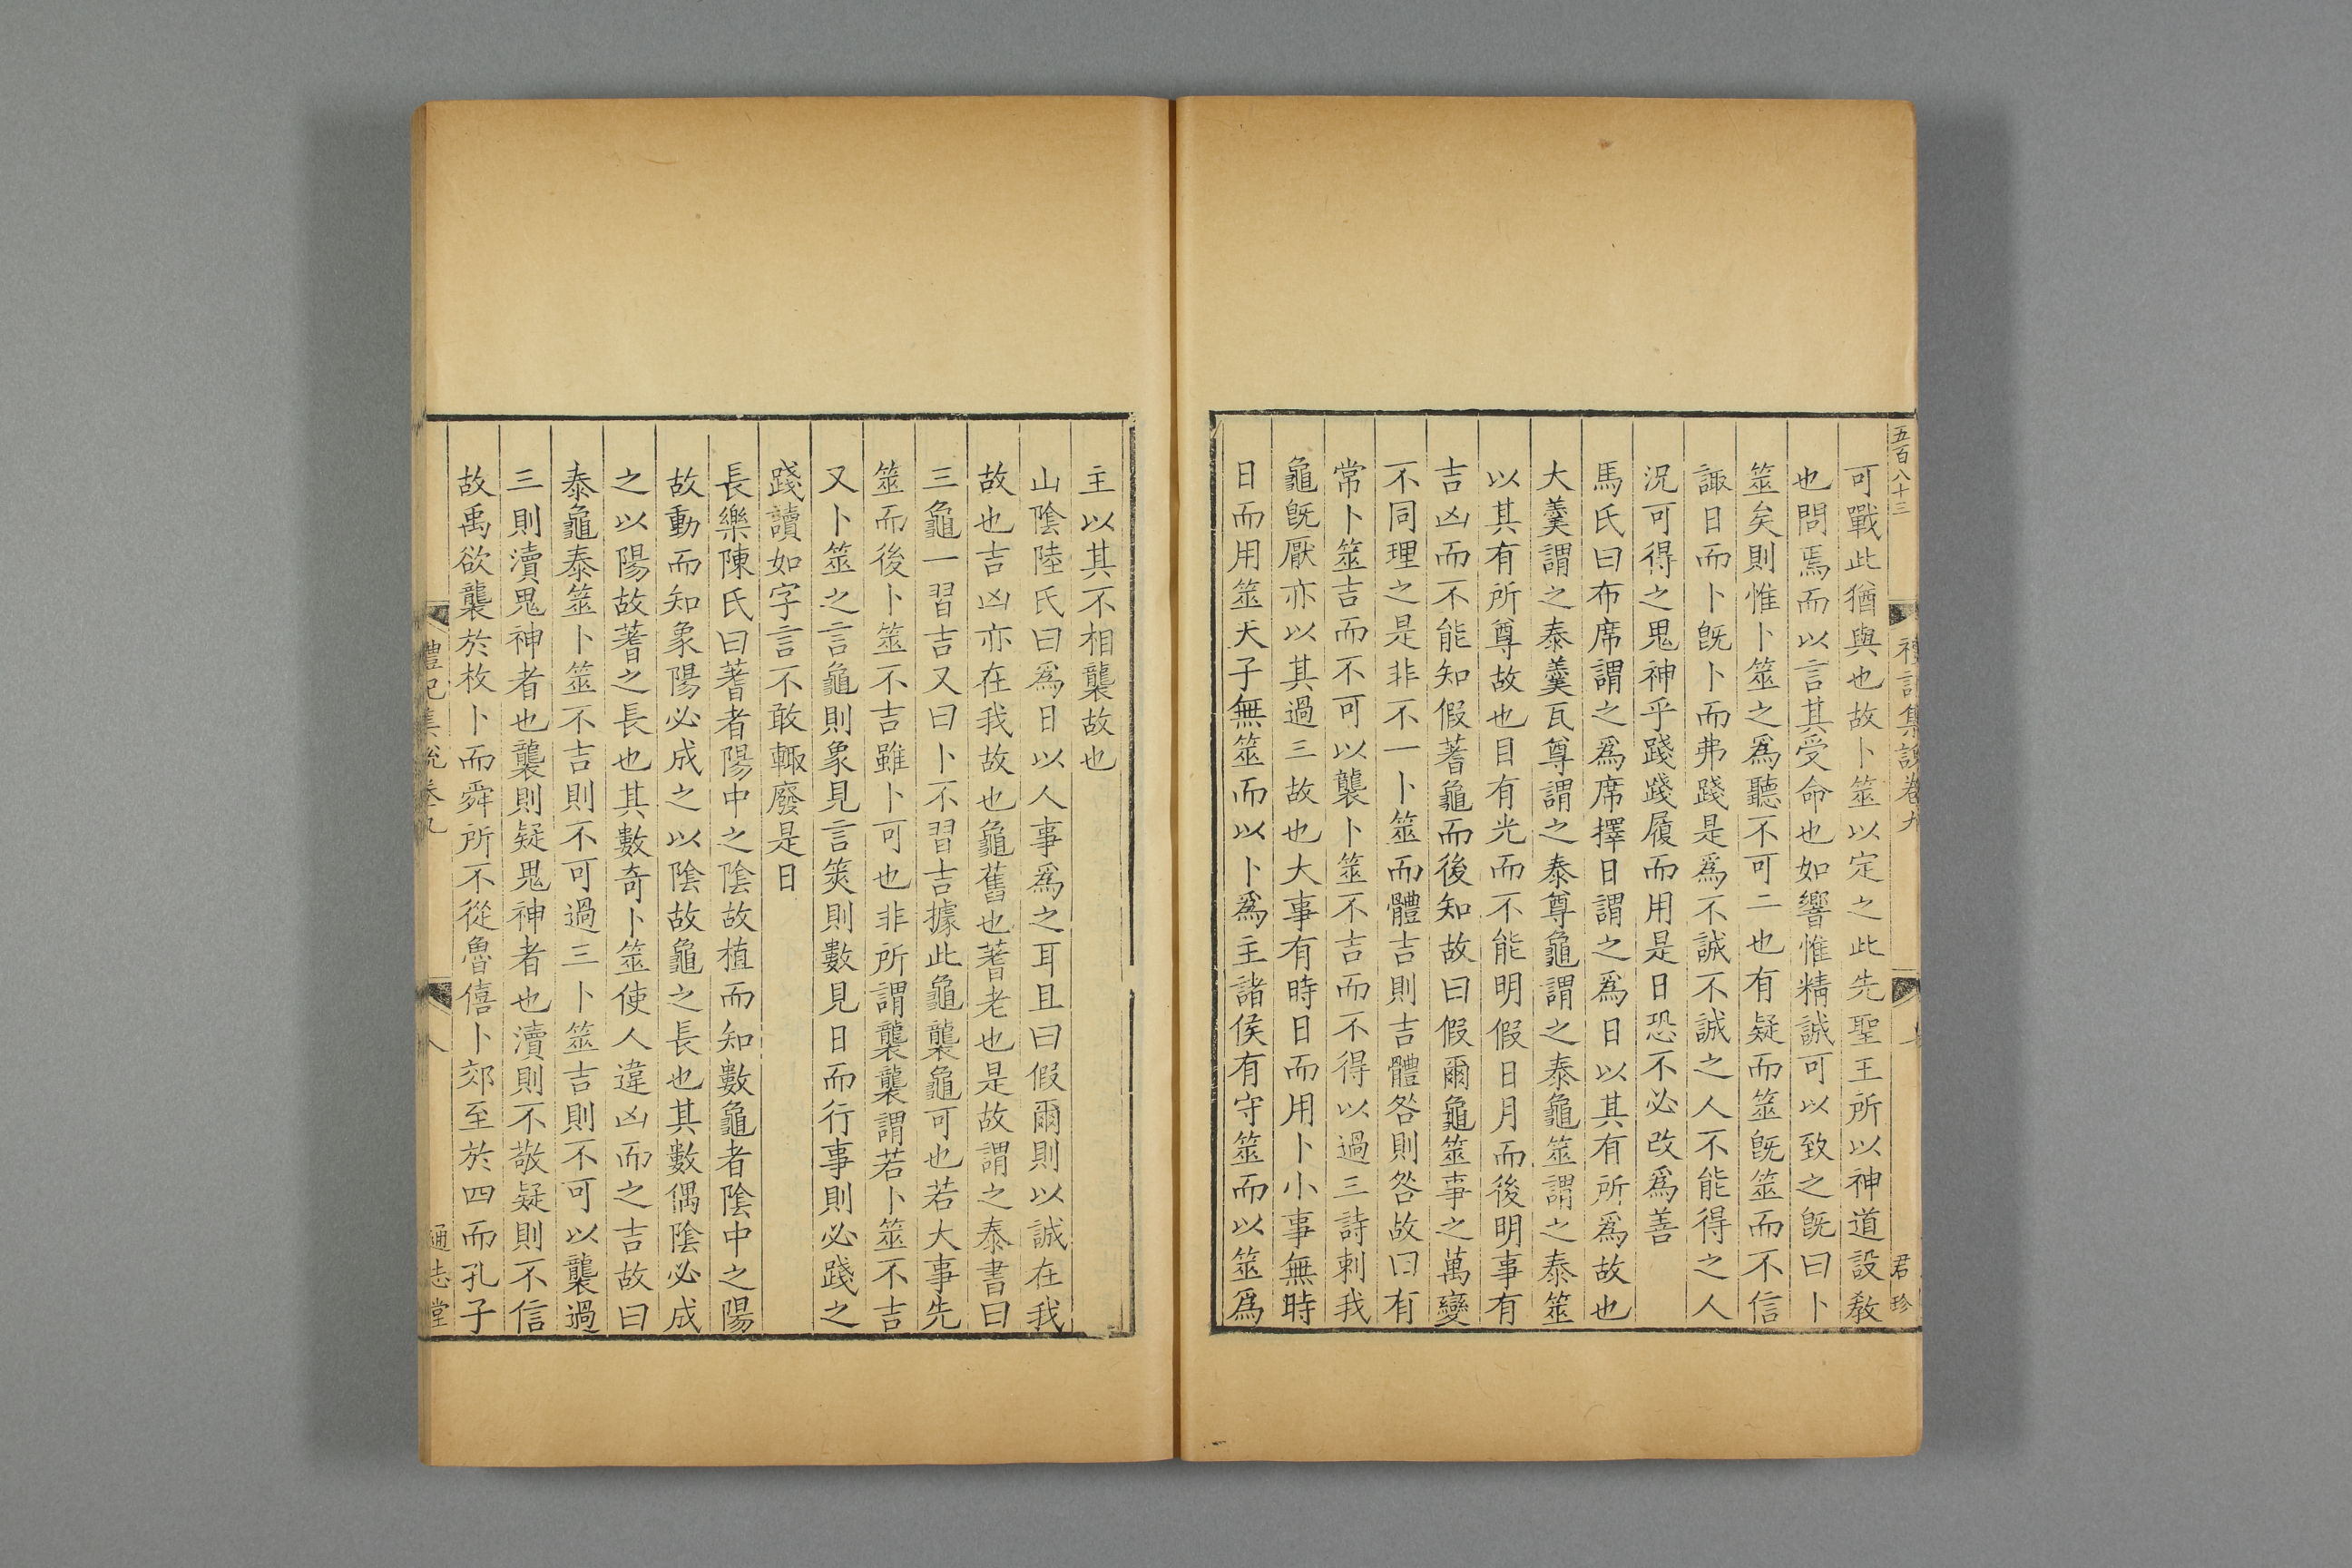 五百八十三
禮記集說卷九
君珍
可戰此猶與也故卜筮以定之此先聖王所以神道設敎
也問焉而以言其受命也如響惟精誠可以致之旣曰卜
筮矣則惟卜筮之爲聽不可二也有疑而筮旣筮而不信
諏日而卜旣卜而弗踐是爲不誠不誠之人不能得之人
況可得之鬼神乎踐踐履而用是日恐不必改爲善
馬氏曰布席謂之爲席擇日謂之爲日以其有所爲故也
大羹謂之泰羹瓦尊謂之泰尊龜謂之泰龜筮謂之泰筮
以其有所尊故也目有光而不能明假日月而後明事有
吉凶而不能知假蓍龜而後知故曰假爾龜筮事之萬變
不同理之是非不一卜筮而體吉則吉體咎則咎故曰有
常卜筮吉而不可以襲卜筮不吉而不得以過三詩刺我
龜旣厭亦以其過三故也大事有時日而用卜小事無時
日而用筮天子無筮而以卜爲主諸侯有守筮而以筮爲
主以其不相襲故也
山陰陸氏曰爲日以人事爲之耳且曰假爾則以誠在我
故也吉凶亦在我故也龜舊也蓍老也是故謂之泰書曰
三龜一習吉又曰卜不習吉據此龜襲龜可也若大事先
筮而後卜筮不吉雖卜可也非所謂襲襲謂若卜筮不吉
又卜筮之言龜則象見言筴則數見日而行事則必踐之
踐讀如字言不敢輙廢是日
長樂陳氏曰蓍者陽中之陰故植而知數龜者陰中之陽
故動而知象陽必成之以陰故龜之長也其數偶陰必成
之以陽故蓍之長也其數奇卜筮使人違凶而之吉故曰
泰龜泰筮卜筮不吉則不可過三卜筮吉則不可以襲過
三則瀆鬼神者也襲則疑鬼神者也瀆則不敬疑則不信
故禹欲襲於枚卜而舜所不從魯僖卜郊至於四而孔子
禮記集說卷九
八
通志堂